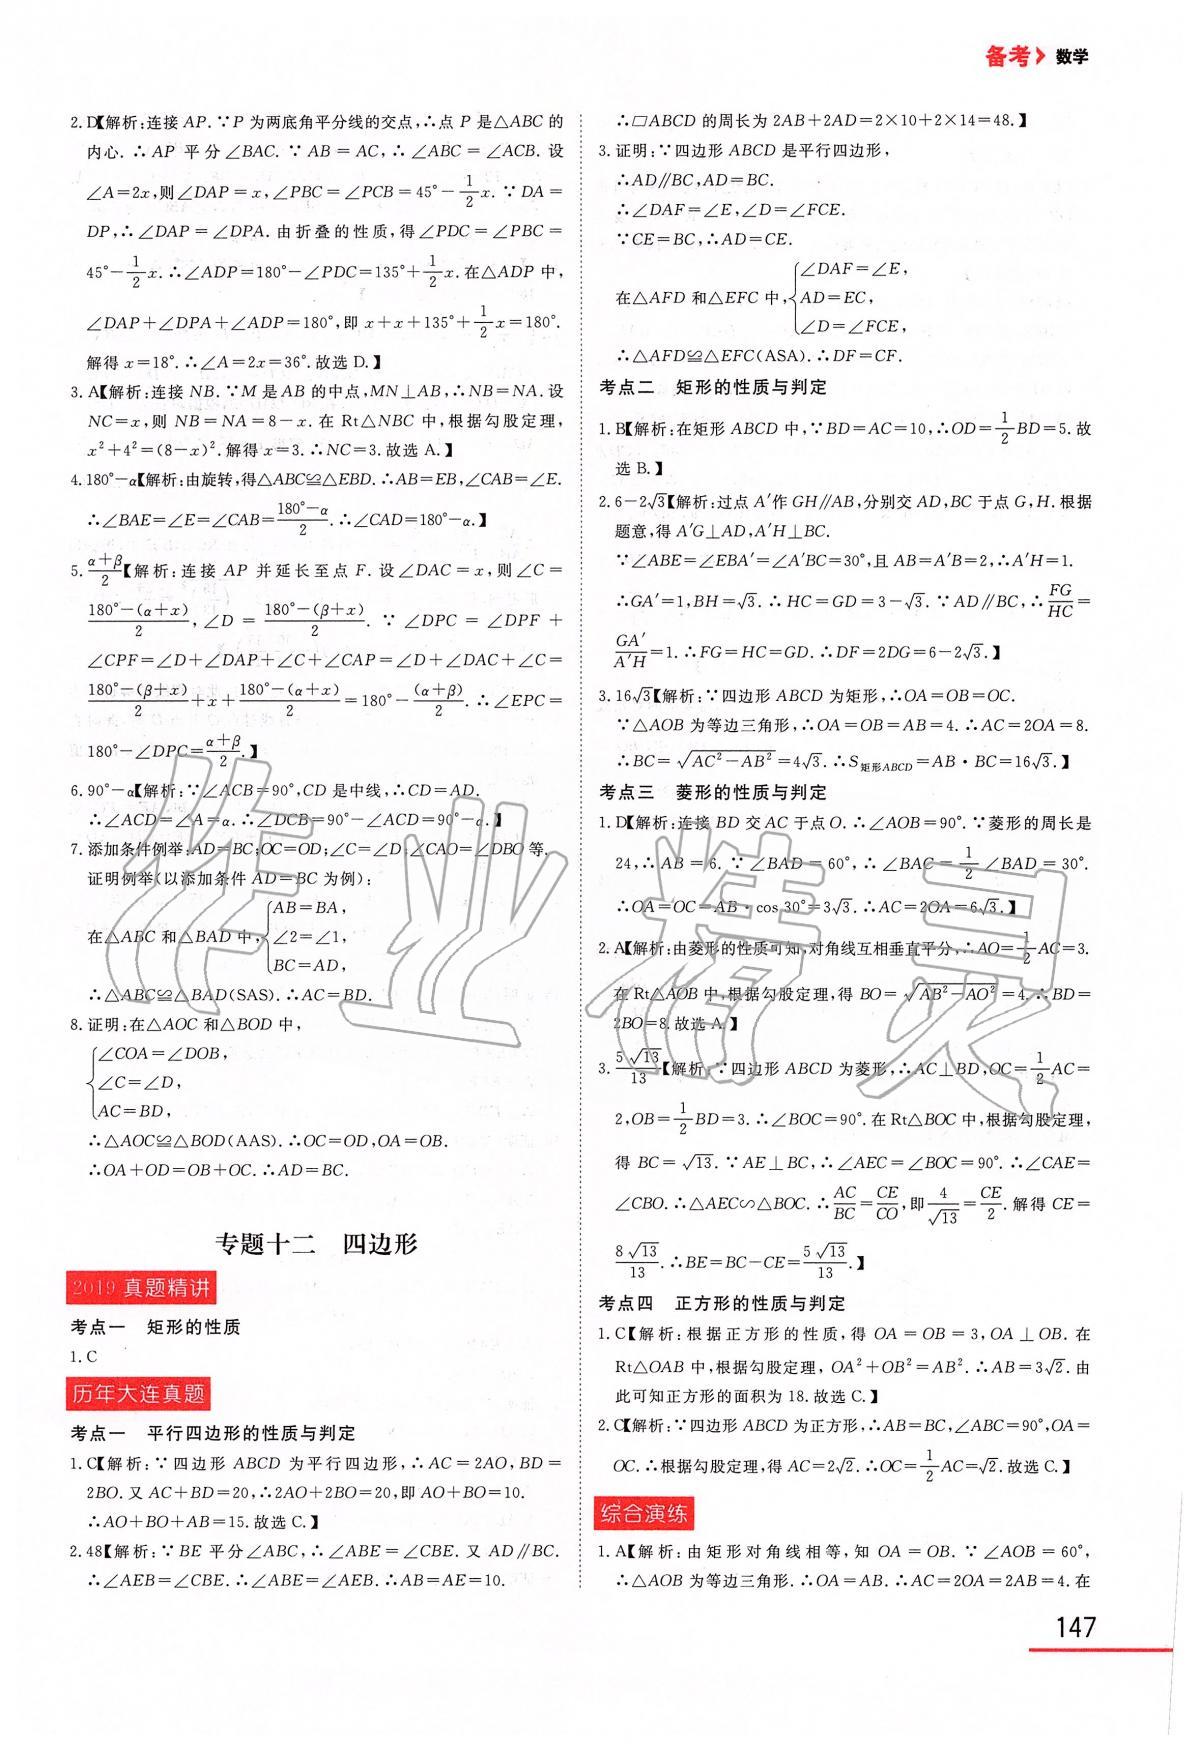 备考 数学
2. D【解析:连接 AP. ∵P 为两底角平分线的交点,∴点 P 是△ABC 的
内心. ∴AP 平分∠BAC. ∵AB=AC,∴∠ABC=∠ACB. 设
∠A=2x,则∠DAP=x,∠PBC=∠PCB=45°-1/2x. ∵DA=
DP,∴∠DAP=∠DPA. 由折叠的性质,得∠PDC=∠PBC=
45°-1/2x. ∴∠ADP=180°-∠PDC=135°+1/2x. 在△ADP 中,
∠DAP+∠DPA+∠ADP=180°,即 x+x+135°+1/2x=180°.
解得 x=18°. ∴∠A=2x=36°. 故选 D.】
3. A【解析:连接 NB. ∵M 是 AB 的中点,MN⊥AB,∴NB=NA. 设
NC=x,则 NB=NA=8-x. 在 Rt△NBC 中,根据勾股定理,
x²+4²=(8-x)². 解得 x=3. ∴NC=3. 故选 A.】
4. 180°-α【解析:由旋转,得△ABC≌△EBD. ∴AB=EB,∠CAB=∠E.
∴∠BAE=∠E=∠CAB=(180°-α)/2. ∴∠CAD=180°-α.】
5. (α+β)/2【解析:连接 AP 并延长至点 F. 设∠DAC=x,则∠C=
(180°-(α+x))/2,∠D=(180°-(β+x))/2. ∵∠DPC=∠DPF+
∠CPF=∠D+∠DAP+∠C+∠CAP=∠D+∠DAC+∠C=
(180°-(β+x))/2+x+(180°-(α+x))/2=180°-(α+β)/2. ∴∠EPC=
180°-∠DPC=(α+β)/2.】
6. 90°-α【解析:∵∠ACB=90°,CD 是中线,∴CD=AD.
∴∠ACD=∠A=α. ∴∠DCB=90°-∠ACD=90°-α.】
7. 添加条件例举:AD=BC;OC=OD;∠C=∠D;∠CAO=∠DBO 等.
证明例举(以添加条件 AD=BC 为例):
AB=BA,
在△ABC 和△BAD 中,{∠2=∠1,
BC=AD,
∴△ABC≌△BAD(SAS). ∴AC=BD.
8. 证明:在△AOC 和△BOD 中,
∠COA=∠DOB,
∠C=∠D,
AC=BD,
∴△AOC≌△BOD(AAS). ∴OC=OD,OA=OB.
∴OA+OD=OB+OC. ∴AD=BC.
专题十二 四边形
2019 真题精讲
考点一 矩形的性质
1. C
历年大连真题
考点一 平行四边形的性质与判定
1. C【解析:∵四边形 ABCD 为平行四边形,∴AC=2AO,BD=
2BO. 又 AC+BD=20,∴2AO+2BO=20,即 AO+BO=10.
∴AO+BO+AB=15. 故选 C.】
2. 48【解析:∵BE 平分∠ABC,∴∠ABE=∠CBE. 又 AD∥BC.
∴∠AEB=∠CBE. ∴∠ABE=∠AEB. ∴AB=AE=10.
∴▱ABCD 的周长为 2AB+2AD=2×10+2×14=48.】
3. 证明:∵四边形 ABCD 是平行四边形,
∴AD∥BC,AD=BC.
∴∠DAF=∠E,∠D=∠FCE.
∵CE=BC,∴AD=CE.
∠DAF=∠E,
在△AFD 和△EFC 中,{AD=EC,
∠D=∠FCE,
∴△AFD≌△EFC(ASA). ∴DF=CF.
考点二 矩形的性质与判定
1. B【解析:在矩形 ABCD 中,∵BD=AC=10,∴OD=1/2BD=5. 故
选 B.】
2. 6-2√3【解析:过点 A′作 GH∥AB,分别交 AD,BC 于点 G,H. 根据
题意,得 A′G⊥AD,A′H⊥BC.
∵∠ABE=∠EBA′=∠A′BC=30°,且 AB=A′B=2,∴A′H=1.
∴GA′=1,BH=√3. ∴HC=GD=3-√3. ∵AD∥BC,∴FG/HC=
GA′/A′H=1. ∴FG=HC=GD. ∴DF=2DG=6-2√3.】
3. 16√3【解析:∵四边形 ABCD 为矩形,∴OA=OB=OC.
∵△AOB 为等边三角形,∴OA=OB=AB=4. ∴AC=2OA=8.
∴BC=√(AC²-AB²)=4√3. ∴S矩形ABCD=AB·BC=16√3.】
考点三 菱形的性质与判定
1. D【解析:连接 BD 交 AC 于点 O. ∴∠AOB=90°. ∵菱形的周长是
24,∴AB=6. ∵∠BAD=60°,∴∠BAC=1/2∠BAD=30°.
∴OA=OC=AB·cos 30°=3√3. ∴AC=2OA=6√3.】
2. A【解析:由菱形的性质可知,对角线互相垂直平分,∴AO=1/2AC=3.
在 Rt△AOB 中,根据勾股定理,得 BO=√(AB²-AO²)=4. ∴BD=
2BO=8. 故选 A.】
3. 5√13/13【解析:∵四边形 ABCD 为菱形,∴AC⊥BD,OC=1/2AC=
2,OB=1/2BD=3. ∴∠BOC=90°. 在 Rt△BOC 中,根据勾股定理,
得 BC=√13. ∵AE⊥BC,∴∠AEC=∠BOC=90°. ∴∠CAE=
∠CBO. ∴△AEC∽△BOC. ∴AC/BC=CE/CO,即4/√13=CE/2. 解得 CE=
8√13/13. ∴BE=BC-CE=5√13/13.】
考点四 正方形的性质与判定
1. C【解析:根据正方形的性质,得 OA=OB=3,OA⊥OB. 在
Rt△OAB 中,根据勾股定理,OA²+OB²=AB². ∴AB=3√2. 由
此可知正方形的面积为 18. 故选 C.】
2. C【解析:∵四边形 ABCD 为正方形,∴AB=BC,∠ABC=90°,OA=
OC. ∴根据勾股定理,得 AC=2√2. ∴OC=1/2AC=√2. 故选 C.】
综合演练
1. A【解析:由矩形对角线相等,知 OA=OB. ∵∠AOB=60°,
∴△AOB 为等边三角形. ∴OA=AB. ∴AC=2OA=2AB=4. 在
147
作业精灵